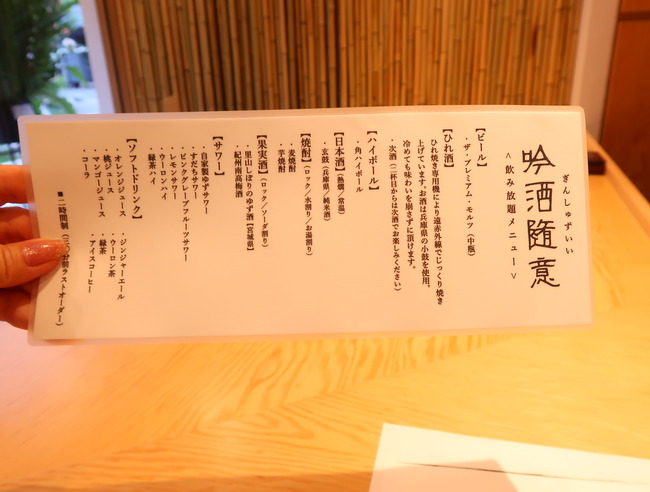 ぎんしゅずいい
吟酒随意
<飲み放題メニュー>
【ビール】
・ザ・プレミアム・モルツ（中瓶）
【ひれ酒】
ひれ焼き専用機により遠赤外線でじっくり焼き
上げています。お酒は兵庫県の小鼓を使用。
冷めても味わいを崩さずに頂けます。
・次酒（二杯目からは次酒でお楽しみください）
【ハイボール】
・角ハイボール
【日本酒】（熱燗／常温）
・玄鼓（兵庫県／純米酒）
【焼酎】（ロック／水割り／お湯割り）
・麦焼酎
・芋焼酎
【果実酒】（ロック／ソーダ割り）
・里山しぼりのゆず酒【宮城県】
・紀州南高梅酒
【サワー】
・自家製ゆずサワー
・すだちサワー
・ピンクグレープフルーツサワー
・レモンサワー
・ウーロンハイ
・緑茶ハイ
【ソフトドリンク】
・オレンジジュース
・桃ジュース
・マンゴージュース
・コーラ
・ジンジャーエール
・ウーロン茶
・緑茶
・アイスコーヒー
■二時間制（三〇分前ラストオーダー）